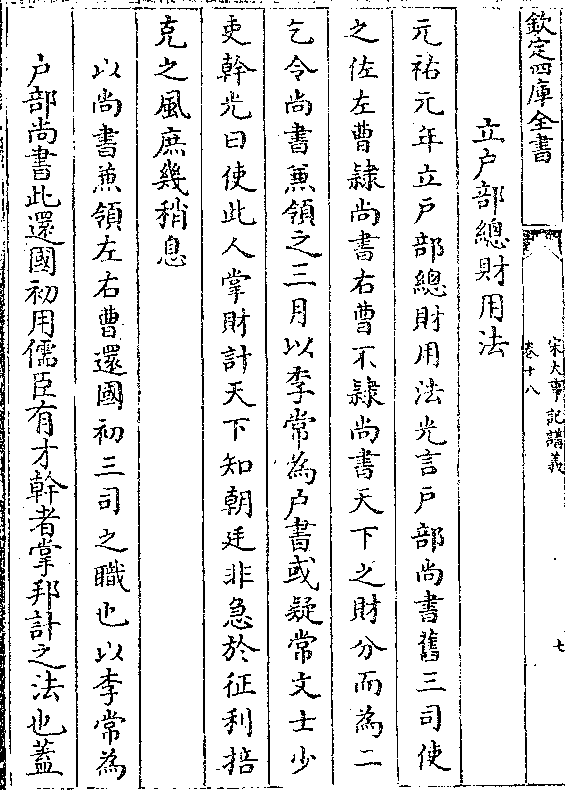 欽定四庫全書
宋大事記講義
卷十八
七
立户部總財用法
元祐元年立户部總財用法光言戸部尚書舊三司使
之佐左曹隷尚書右曹不隷尚書天下之財分而為二
乞令尚書兼領之三月以李常為户書或疑常文士少
吏幹光曰使此人掌財計天下知朝廷非急於征利掊
克之風庶幾稍息
以尚書兼領左右曹還國初三司之職也以李常為
户部尚書此還國初用儒臣有才幹者掌邦計之法也蓋